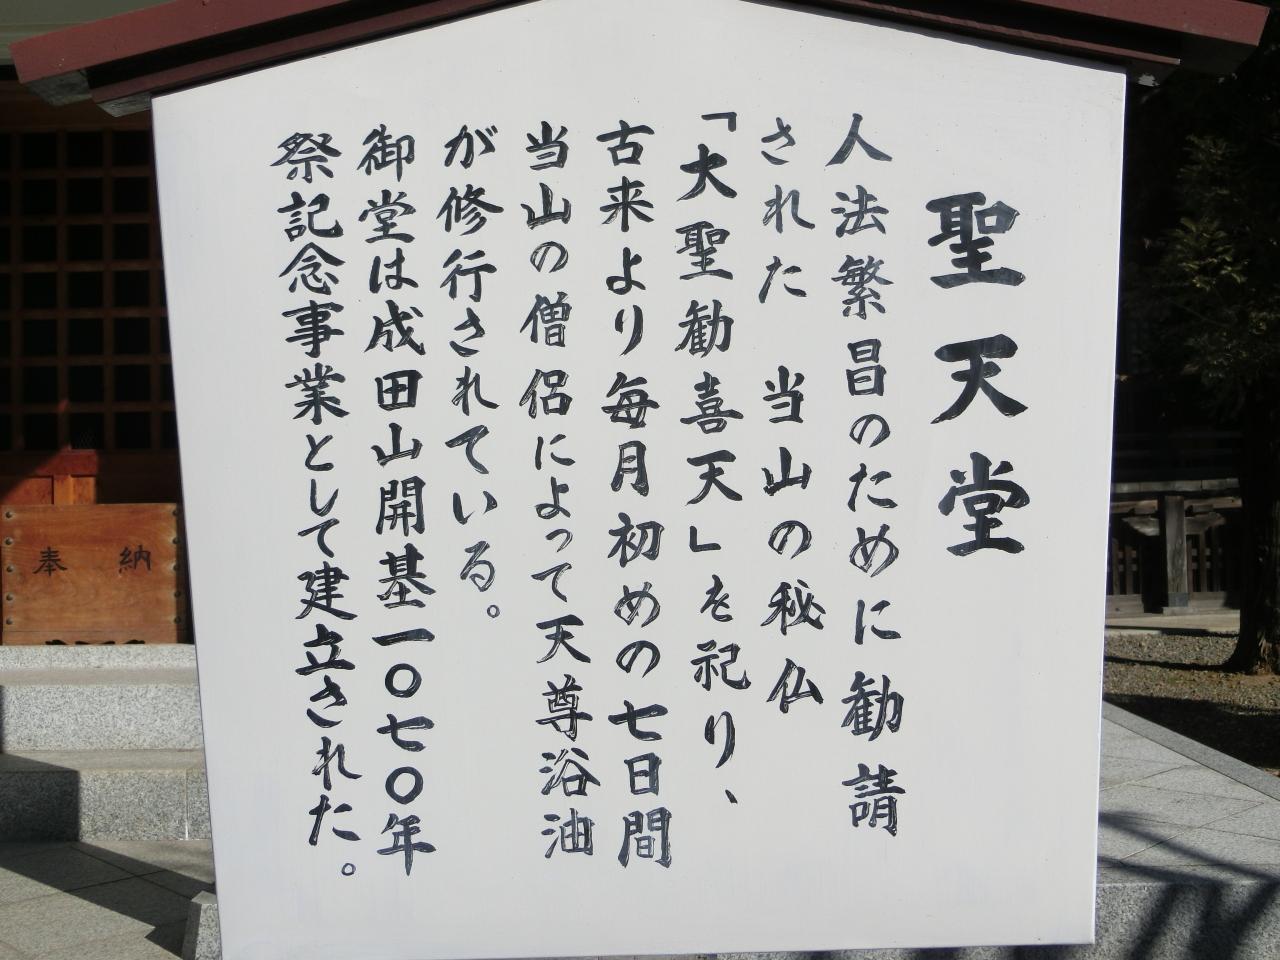 聖天堂
人法繁昌のために勧請
された 当山の秘仏
「大聖勧喜天」を祀り、
古来より毎月初めの七日間
当山の僧侶によって天尊浴油
が修行されている。
御堂は成田山開基一〇七〇年
祭記念事業として建立された。
奉納